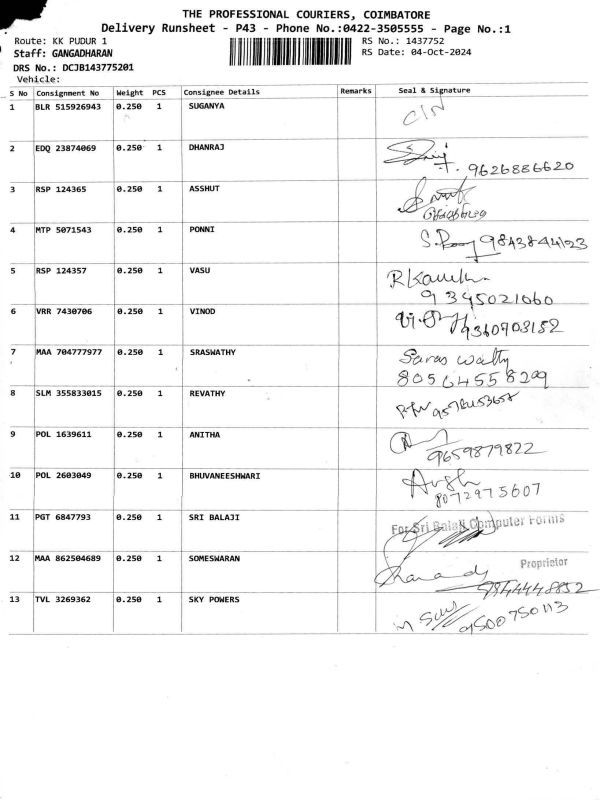 THE PROFESSIONAL COURIERS, COIMBATORE
Delivery Runsheet - P43 - Phone No.:0422-3505555 - Page No.:1
Route: KK PUDUR 1 RS No.: 1437752
Staff: GANGADHARAN RS Date: 04-Oct-2024
DRS No.: DCJB143775201
Vehicle:
S No Consignment No Weight PCS Consignee Details Remarks Seal & Signature
1 BLR 515926943 0.250 1 SUGANYA C/N
2 EDQ 23874069 0.250 1 DHANRAJ
9626886620
3 RSP 124365 0.250 1 ASSHUT
4 MTP 5071543 0.250 1 PONNI 9843844123
5 RSP 124357 0.250 1 VASU
9345021060
6 VRR 7430706 0.250 1 VINOD 9360903152
7 MAA 704777977 0.250 1 SRASWATHY Saraswathy
8056455829
8 SLM 355833015 0.250 1 REVATHY
9 POL 1639611 0.250 1 ANITHA
9659879822
10 POL 2603049 0.250 1 BHUVANEESHWARI
8072975607
11 PGT 6847793 0.250 1 SRI BALAJI For Sri Balaji Computer Forms
12 MAA 862504689 0.250 1 SOMESWARAN Proprietor
9944448852
13 TVL 3269362 0.250 1 SKY POWERS
9500750113